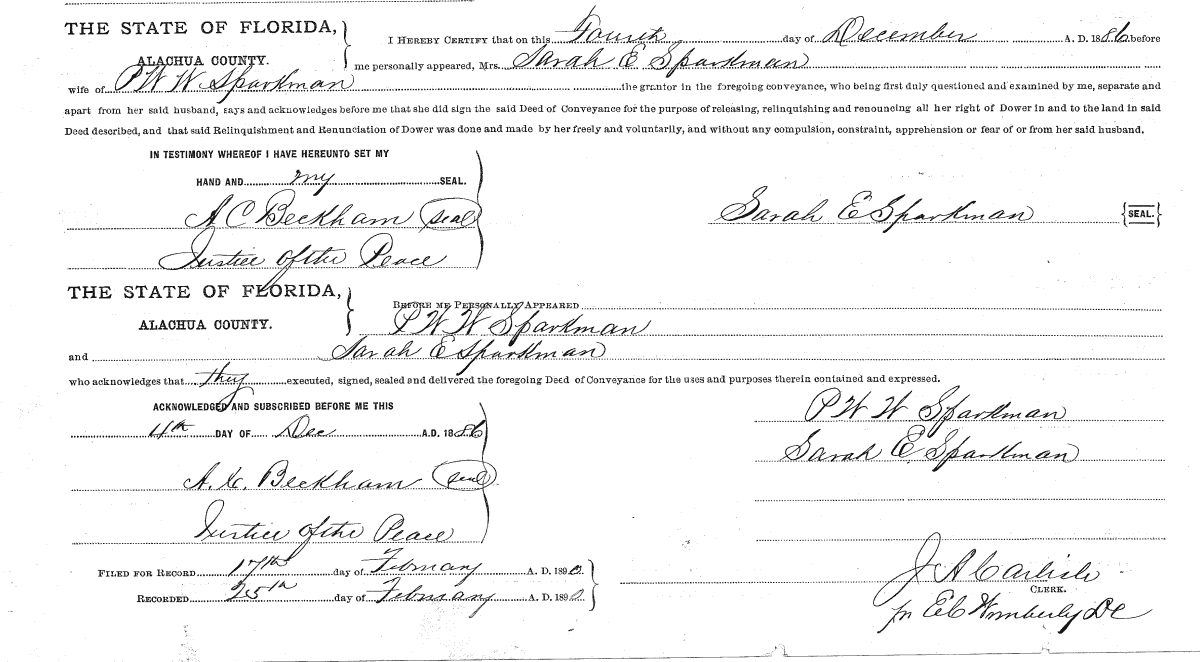 THE STATE OF FLORIDA,
ALACHUA COUNTY.
I HEREBY CERTIFY that on this Fourth day of December A. D. 1886 before
me personally appeared, Mrs. Sarah E Sparkman
wife of P W W Sparkman the grantor in the foregoing conveyance, who being first duly questioned and examined by me, separate and
apart from her said husband, says and acknowledges before me that she did sign the said Deed of Conveyance for the purpose of releasing, relinquishing and renouncing all her right of Dower in and to the land in said
Deed described, and that said Relinquishment and Renunciation of Dower was done and made by her freely and voluntarily, and without any compulsion, constraint, apprehension or fear of or from her said husband.
IN TESTIMONY WHEREOF I HAVE HEREUNTO SET MY
HAND AND my SEAL.
A C Beckham (seal)
Sarah E Sparkman {SEAL.}
Justice of the Peace
THE STATE OF FLORIDA,
ALACHUA COUNTY.
BEFORE ME PERSONALLY APPEARED
P W W Sparkman
and Sarah E Sparkman
who acknowledges that they executed, signed, sealed and delivered the foregoing Deed of Conveyance for the uses and purposes therein contained and expressed.
ACKNOWLEDGED AND SUBSCRIBED BEFORE ME THIS
4th DAY OF Dec A.D. 1886
P W W Sparkman
Sarah E Sparkman
A. C. Beckham (seal)
Justice of the Peace
FILED FOR RECORD 17th day of February A. D. 1890
RECORDED 25th day of February A. D. 1890
J A Carlisle
CLERK.
pr E C Wimberly DC